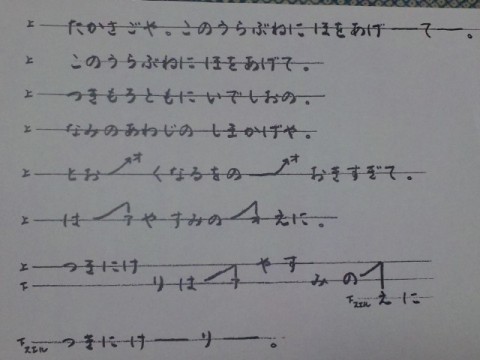 上 たかさごや。このうらぶねにほをあげーてー。
上 このうらぶねにほをあげて。
上 つきもろともにいでしおの。
上 なみのあわじのしまかげや。
上 とおオくなるをのオおきすぎて。
上 はアやすみのオえに。
上 つきにけ やす
下 りはア みの
下スエル えに
下スエル つきにけーりー。